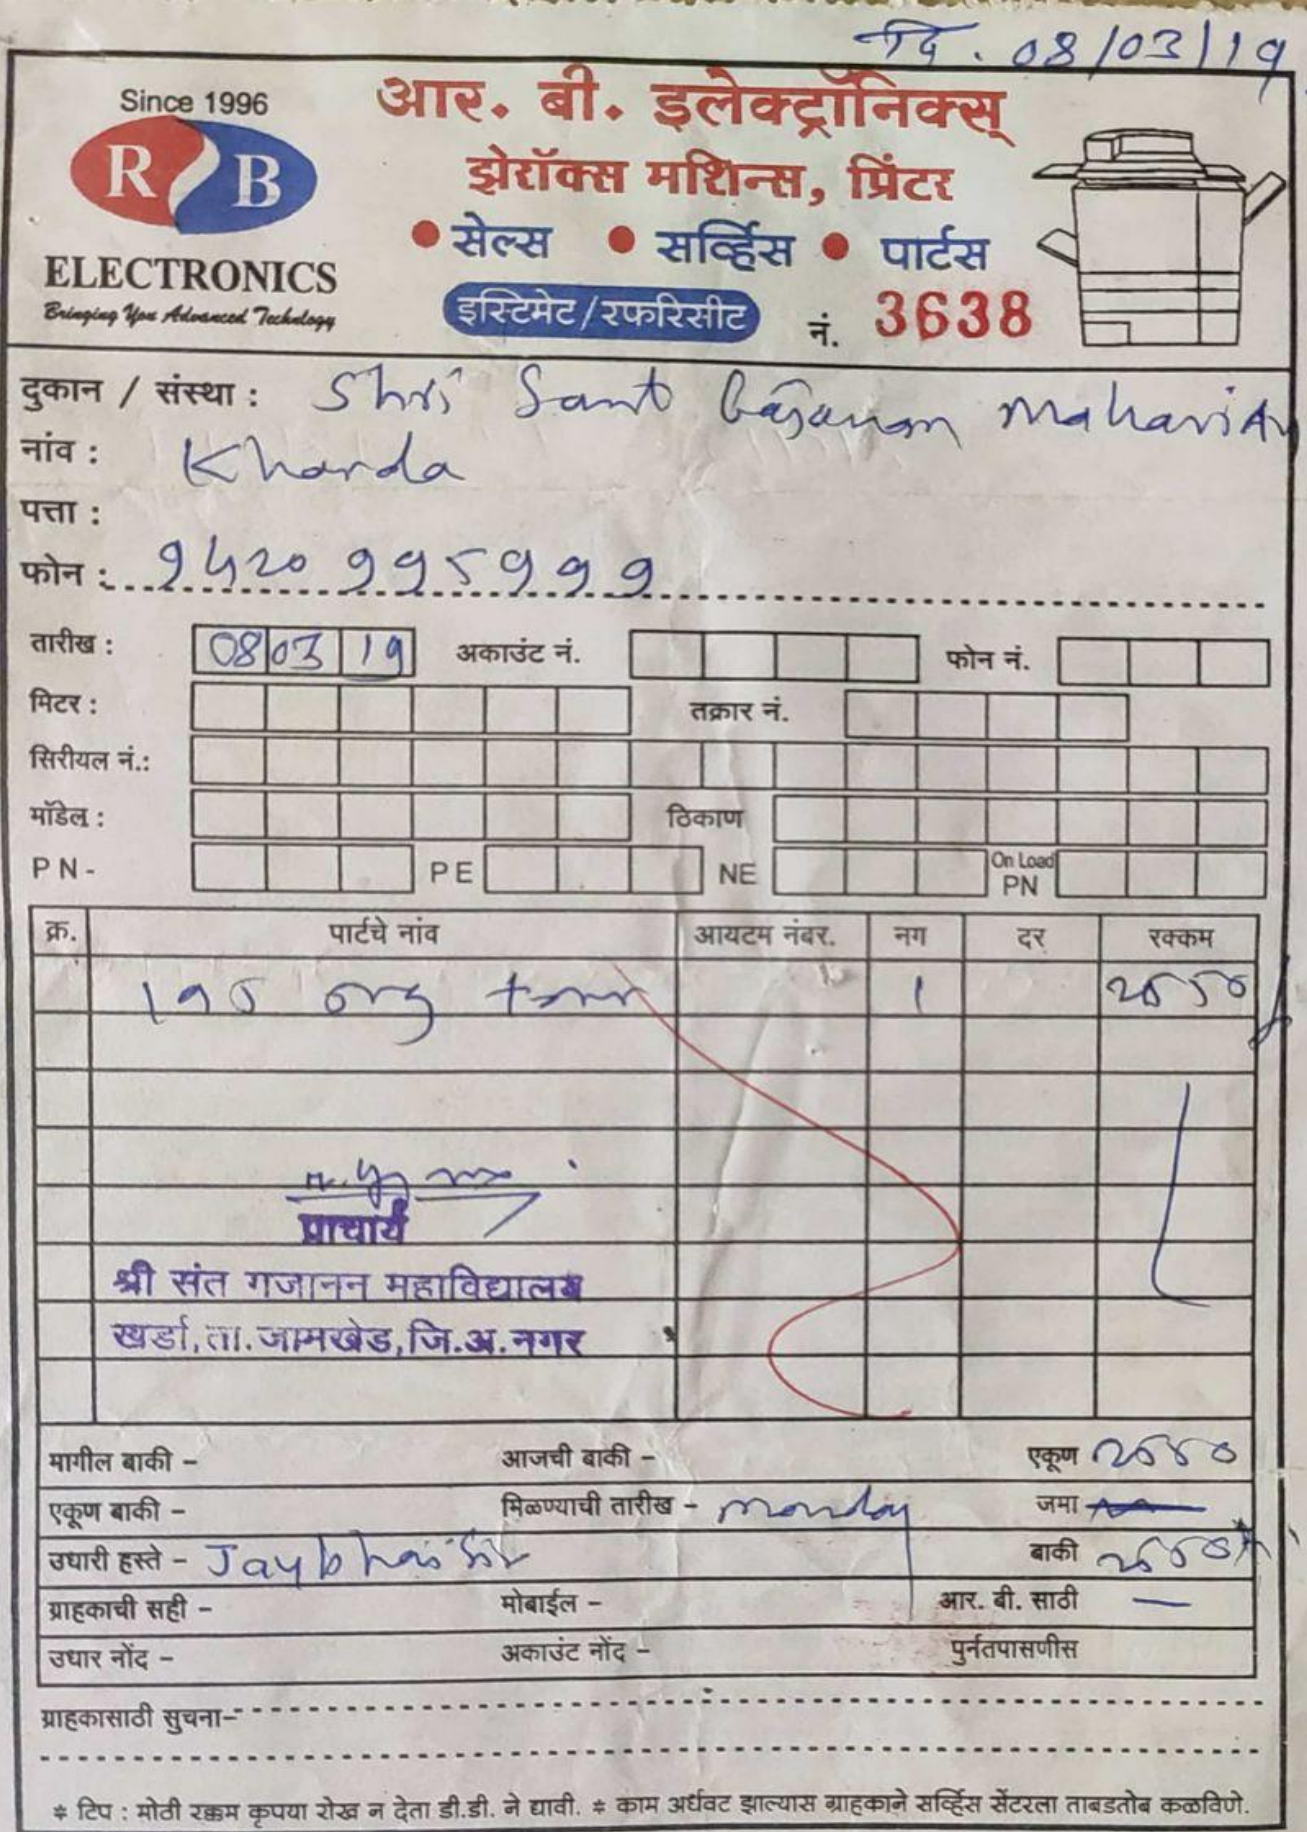 दि. 08/03/19
Since 1996
RB
ELECTRONICS
Bringing You Advanced Technology
आर. बी. इलेक्ट्रॉनिक्स्
झेरॉक्स मशिन्स, प्रिंटर
• सेल्स • सर्व्हिस • पार्टस
इस्टिमेट/रफरिसीट नं. 3638
दुकान / संस्था : Shri Sant Gajanan
नांव : Kharda
पत्ता :
फोन :
तारीख : 08 03 19 अकाउंट नं. फोन नं.
मिटर : तक्रार नं.
सिरीयल नं.:
मॉडेल : ठिकाण
PN- PE NE On Load PN
क्र. पार्टचे नांव आयटम नंबर. नग दर रक्कम
1
प्राचार्य
श्री संत गजानन महाविद्यालय
खर्डा, ता. जामखेड, जि.अ.नगर
मागील बाकी – आजची बाकी – एकूण
एकूण बाकी – मिळण्याची तारीख – monday जमा
उधारी हस्ते – बाकी
ग्राहकाची सही – मोबाईल – आर. बी. साठी —
उधार नोंद – अकाउंट नोंद – पुर्नतपासणीस
ग्राहकासाठी सुचना–
* टिप : मोठी रक्कम कृपया रोख न देता डी.डी. ने द्यावी. * काम अर्धवट झाल्यास ग्राहकाने सर्व्हिस सेंटरला ताबडतोब कळविणे.